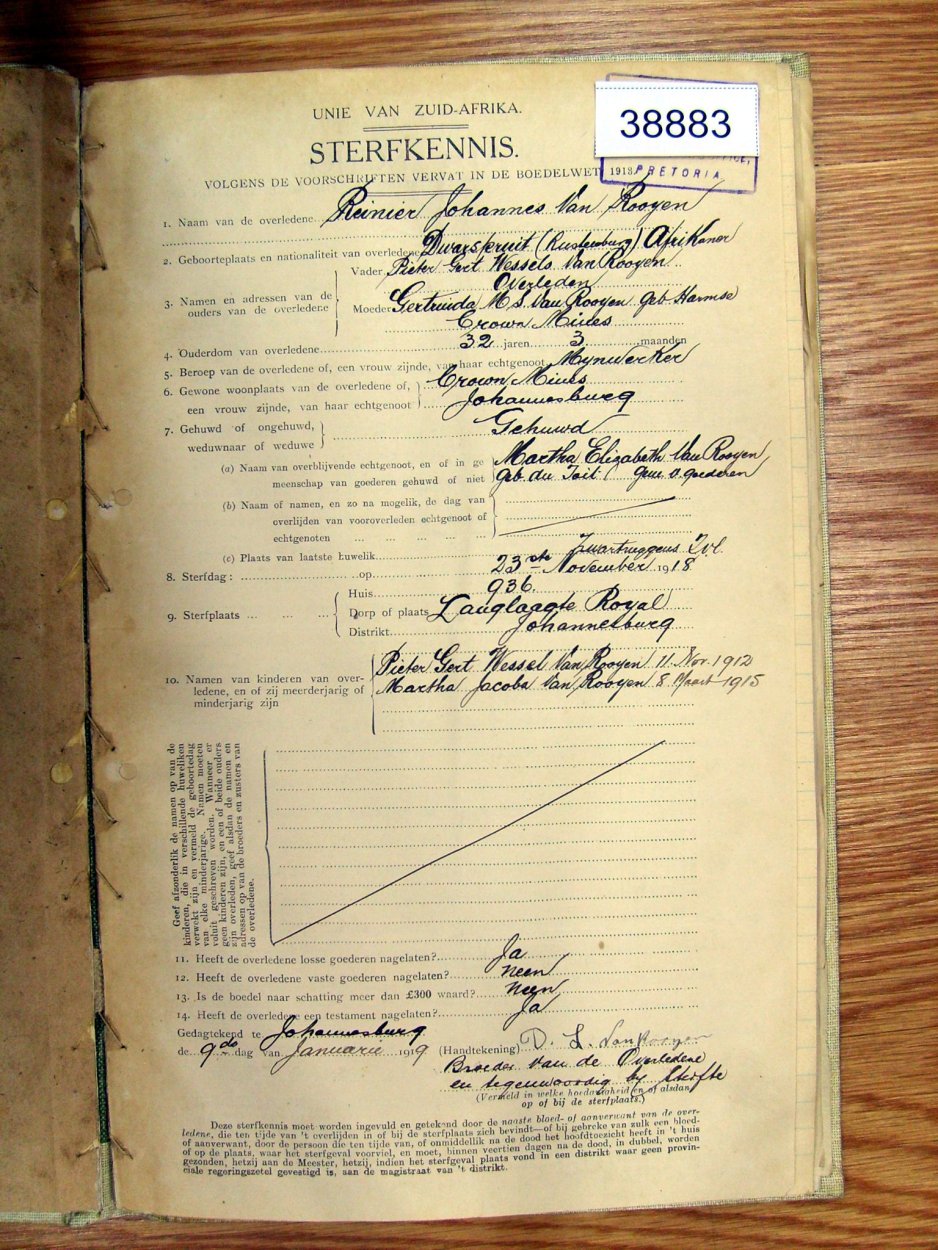 38883
PRETORIA
UNIE VAN ZUID-AFRIKA.
STERFKENNIS.
VOLGENS DE VOORSCHRIFTEN VERVAT IN DE BOEDELWET 1913
1. Naam van de overledene Reinier Johannes Van Rooyen
2. Geboorteplaats en nationaliteit van overledene Dwarsspruit (Rustenburg) Afrikaner
Vader Pieter Gert Wessels Van Rooyen
Overleden
3. Namen en adressen van de
ouders van de overledene
Moeder Gertruida M S. Van Rooyen geb Harmse
Crown Mines
4. Ouderdom van overledene 32 jaren 3 maanden
5. Beroep van de overledene of, een vrouw zijnde, van haar echtgenoot Mynwerker
6. Gewone woonplaats van de overledene of, Crown Mines
een vrouw zijnde, van haar echtgenoot Johannesburg
7. Gehuwd of ongehuwd, Gehuwd
weduwnaar of weduwe
(a) Naam van overblijvende echtgenoot, en of in ge Martha Elizabeth Van Rooyen
meenschap van goederen gehuwd of niet geb du Toit / gem. v. goederen
(b) Naam of namen, en zo na mogelik, de dag van
overlijden van vooroverleden echtgenoot of
echtgenoten
(c) Plaats van laatste huwelik Zwartruggens Tvl.
8. Sterfdag: op 23ste November 1918
Huis 936.
9. Sterfplaats Dorp of plaats Langlaagte Royal
Distrikt Johannesburg
Pieter Gert Wessel Van Rooyen 11 Nov. 1912
10. Namen van kinderen van over- Martha Jacoba Van Rooyen 8 Maart 1915
ledene, en of zij meerderjarig of
minderjarig zijn
Geef afzonderlik de namen op van de
kinderen, die in verschillende huweliken
verwekt zijn en vermeld de geboortedag
van elke minderjarige. Namen moeten
voluit geschreven worden. Wanneer er
geen kinderen zijn, en een of beide ouders
zijn overleden, geef alsdan de namen en
adressen op van de broeders en zusters van
de overledene.
11. Heeft de overledene losse goederen nagelaten? Ja
12. Heeft de overledene vaste goederen nagelaten? neen
13. Is de boedel naar schatting meer dan £300 waard? neen
14. Heeft de overledene een testament nagelaten? Ja
Gedagtekend te Johannesburg
de 9de dag van Januarie 1919 (Handtekening) D. L. Van Rooyen
Broeder van de Overledene
en tegenwoordig by Sterfte
(Vermeld in welke hoedanigheid en of alsdan
op of bij de sterfplaats.)
Deze sterfkennis moet worden ingevuld en getekend door de naaste bloed- of aanverwant van de over-
ledene, die ten tijde van 't overlijden in of bij de sterfplaats zich bevindt—of bij gebreke van zulk een bloed-
of aanverwant, door de persoon die ten tijde van, of onmiddellik na de dood het hoofdtoezicht heeft in 't huis
of op de plaats, waar het sterfgeval voorviel, en moet, binnen veertien dagen na de dood, in dubbel, worden
gezonden, hetzij aan de Meester, hetzij, indien het sterfgeval plaats vond in een distrikt waar geen provin-
ciale regeringszetel gevestigd is, aan de magistraat van 't distrikt.